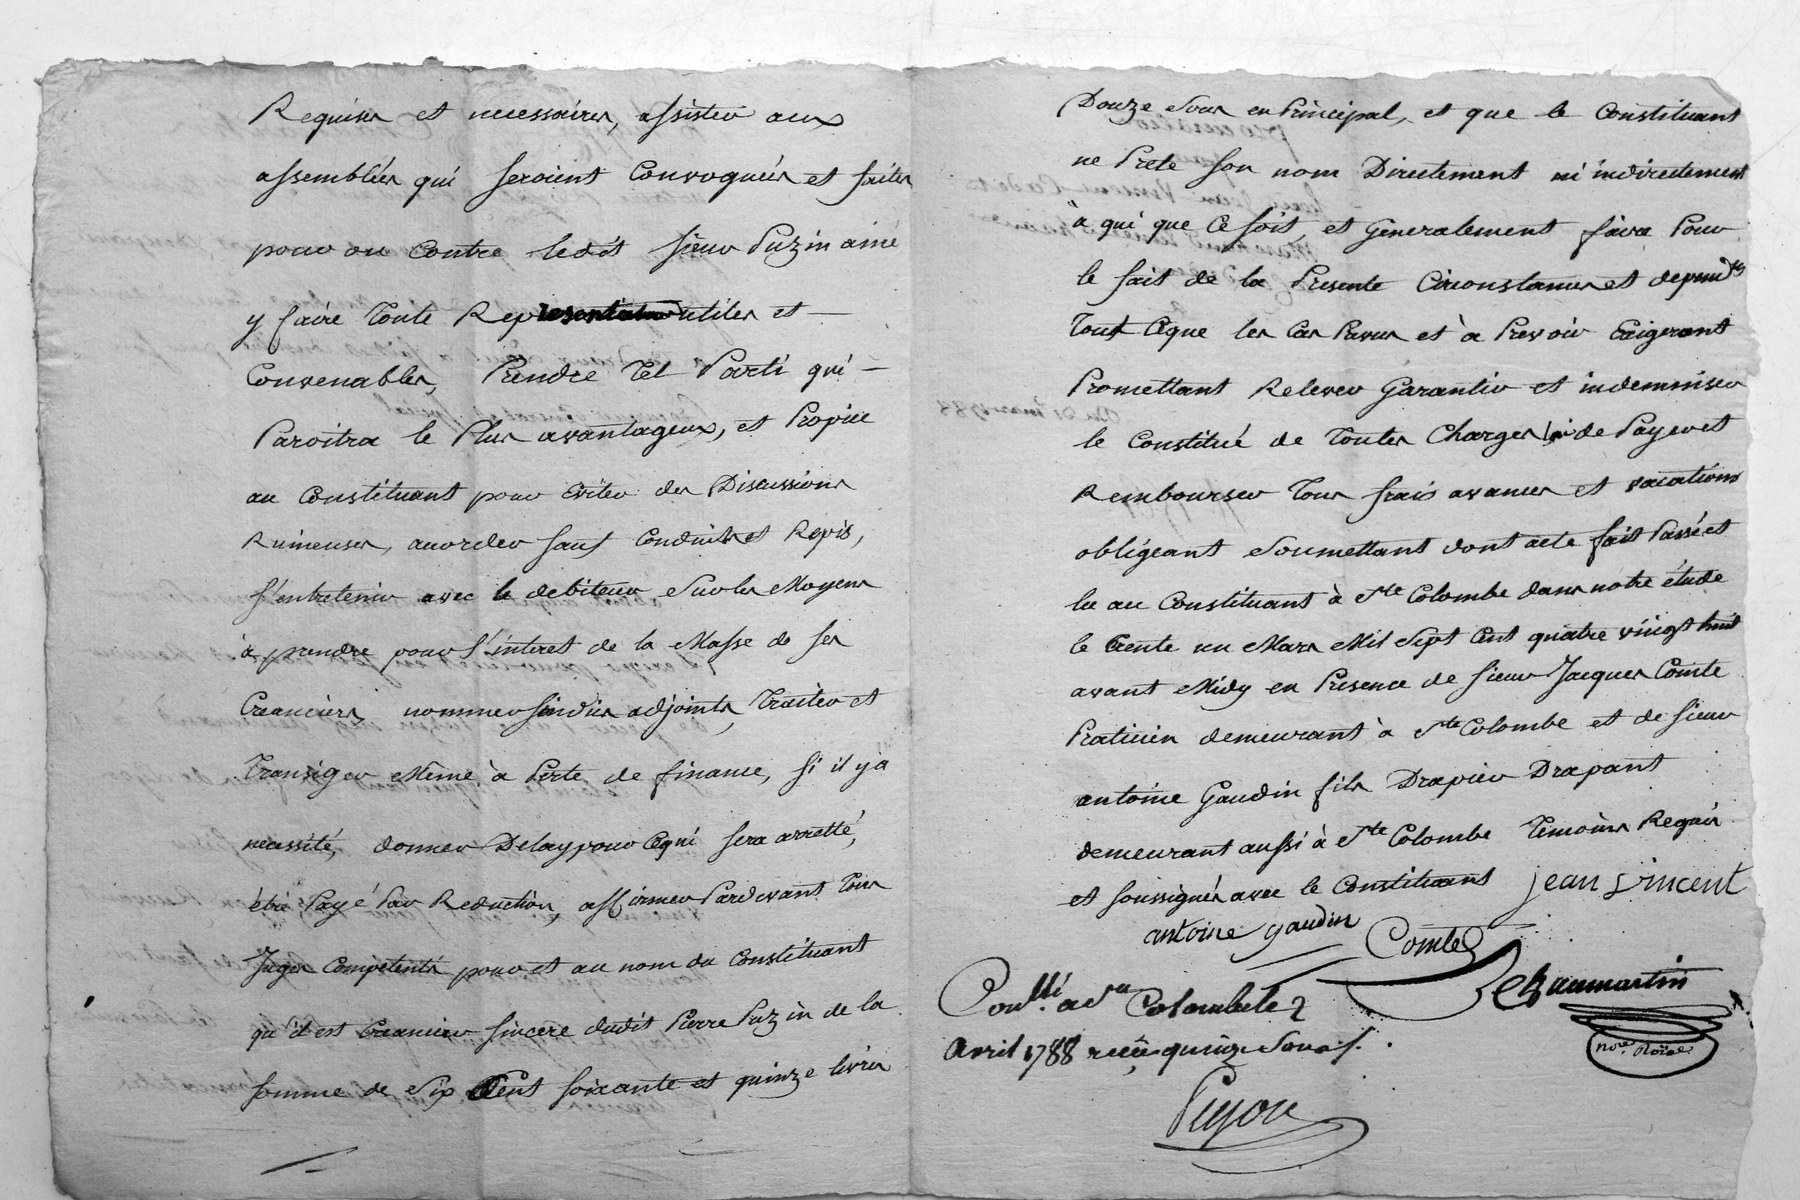 Requises et necessaires, assister aux
assemblées qui seroient Convoquées et faites
pour ou Contre ledit sieur Puzin ainé
y faire Toute Representation utiles et —
Convenables, Prendre Tel Parti qui —
Paroitra le Plus avantageux, et Propice
au Constituant pour Eviter des Discussions
Ruineuses, accorder sauf Conduits et Repis,
s'entretenir avec le debiteur Sur les Moyens
à prendre pour l'interet de la Masse de ses
Creanciers, nommer sindics adjoints, Traiter et
Transiger Même à Perte de finance, si il y a
necessité, donner Delay pour Ce qui sera arretté,
être Payé Par Reduction, affirmer Pardevant Tous
Juges Competents pour et au nom du Constituant
qu'il est Creancier sincere dudit Pierre Puzin de la
somme de Six Cent soixante et quinze livres
Douze Sous en Principal, et que le Constituant
ne Prete son nom Directement ni indirectement
à qui que Ce soit, et Generalement faire Pour
le fait de la Presente Circonstances et depend.ces
Tout Ceque les Cas Prevus et à Prevoir Exigeront
Promettant Relever Garantir et indemniser
le Constitué de Toutes Charges de Payer et
Rembourser Tous frais avances et vacations
obligeant Soumettant dont acte fait Passé et
lu au Constituant à Ste Colombe dans notre étude
le Trente un Mars Mil Sept Cent quatre vingt huit
avant Midy en Presence de sieur Jacques Comte
Praticien demeurant à Ste Colombe et de sieur
antoine Gaudin fils Drapier Drapant
demeurant aussi à Ste Colombe Temoins Requis
et soussignés avec le Constituant jean vincent
antoine gaudin
Comte
Chaumartin
Conllé. a Ste Colombe le 2
Avril 1788 recu quinze Sous f.
nore. Roïal
Peyon